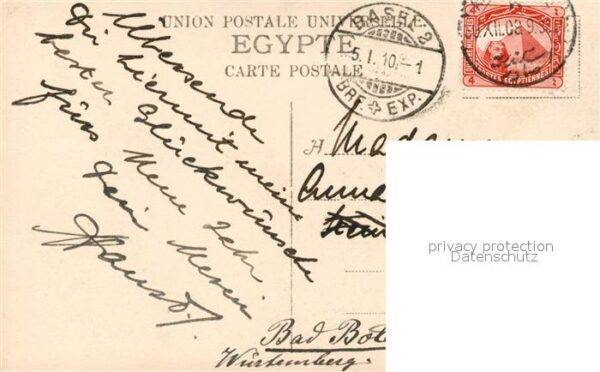 UNION POSTALE UNIVERSELLE
EGYPTE
CARTE POSTALE
BASEL 2
5.I.10.-1
BRF. EXP.
XII.09 9.3
POSTES EGYPTIENNES
Übersende
Dir hiermit meine
besten Glückwünsche
fürs Neue Jahr
Dein
A Madame
Anna
Bad Bol
Würtemberg.
privacy protection
Datenschutz